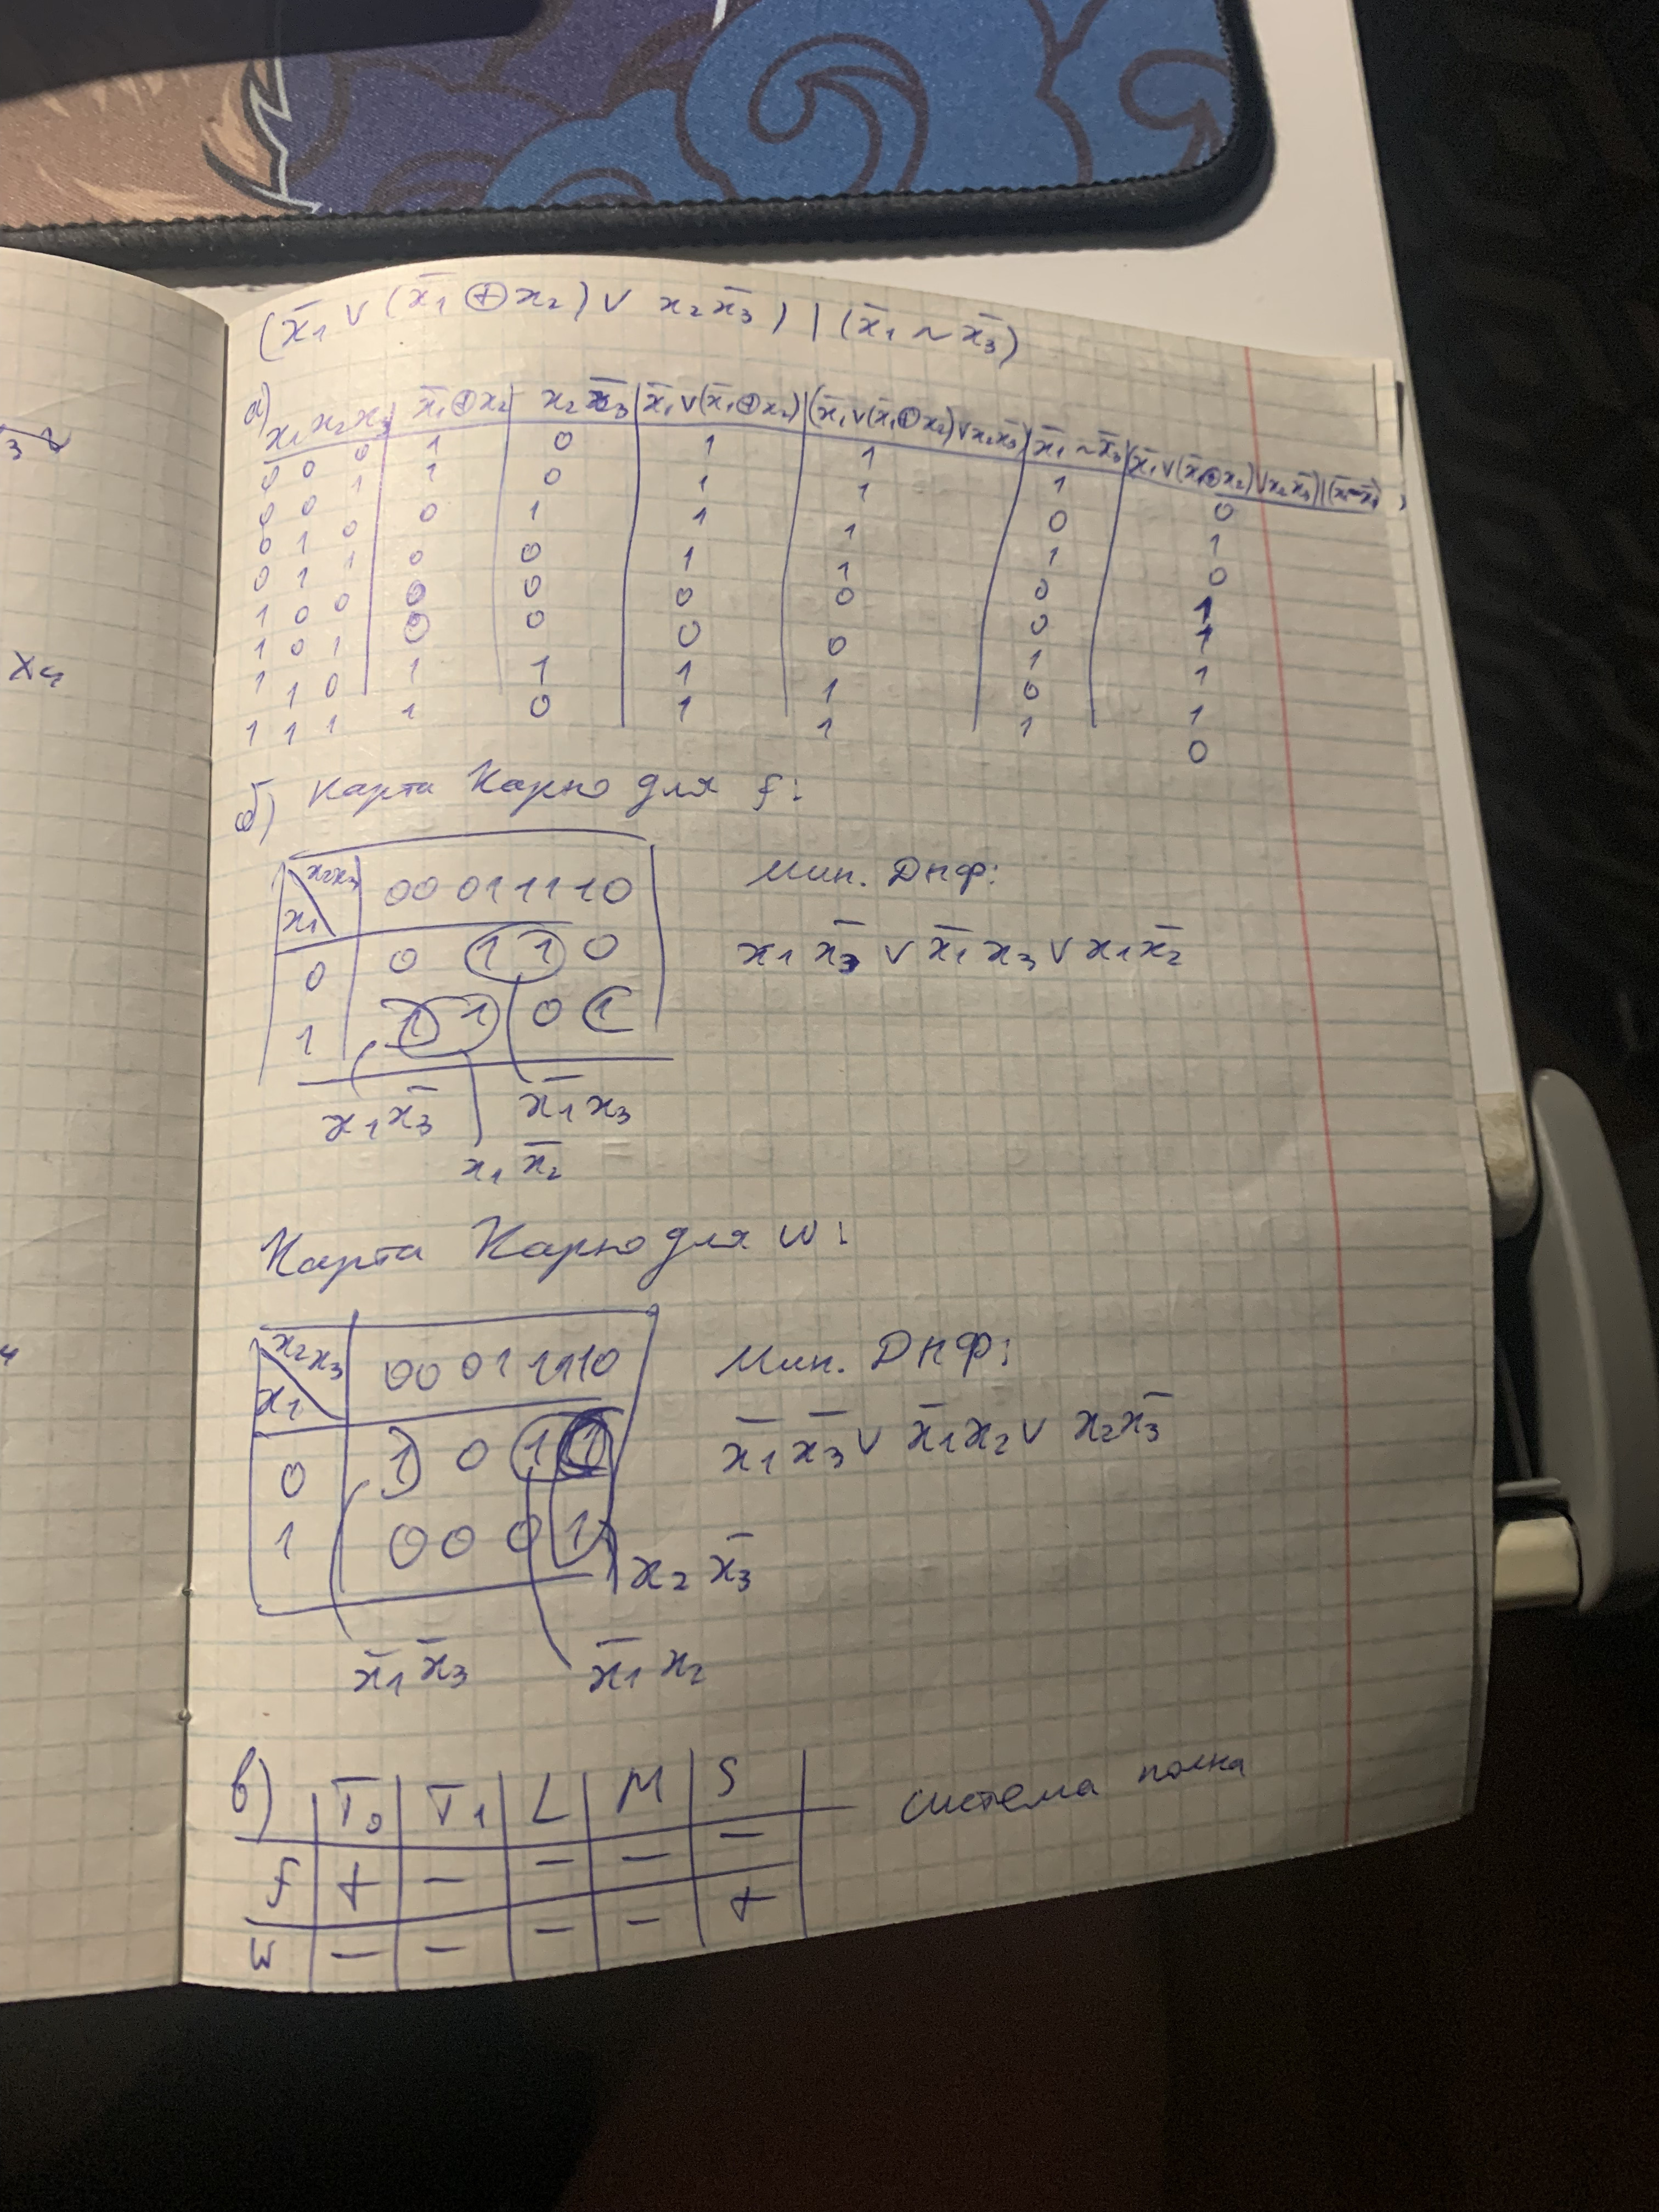 (x̄₁ ∨ (x̄₁ ⊕ x₂) ∨ x₂x̄₃) | (x̄₁ ~ x̄₃)
а)
x₁ x₂ x₃ | x̄₁⊕x₂ | x₂x̄₃ | x̄₁∨(x̄₁⊕x₂) | (x̄₁∨(x̄₁⊕x₂)∨x₂x̄₃) | x̄₁~x̄₃ | (x̄₁∨(x̄₁⊕x₂)∨x₂x̄₃)|(x̄₁~x̄₃)
0 0 0 1 0 1 1 1 0
0 0 1 1 0 1 1 0 1
0 1 0 0 1 1 1 1 0
0 1 1 0 0 1 1 0 1
1 0 0 0 0 0 0 0 1
1 0 1 0 0 0 0 1 1
1 1 0 1 1 1 1 0 1
1 1 1 1 0 1 1 1 0
б) Карта Карно для f:
x₂x₃ 00 01 11 10
x₁
0 0 1 1 0
1 1 1 0 1
x₁x̄₃ x̄₁x₃
x₁x̄₂
Мин. ДНФ:
x₁x̄₃ ∨ x̄₁x₃ ∨ x₁x̄₂
Карта Карно для w:
x₂x₃ 00 01 11 10
x₁
0 1 0 1 1
1 0 0 0 1
x₂x̄₃
x̄₁x̄₃ x̄₁x₂
Мин. ДНФ:
x̄₁x̄₃ ∨ x̄₁x₂ ∨ x₂x̄₃
в) T₀ T₁ L M S
f + − − − −
w − − − − +
система полна
3
x₄
4